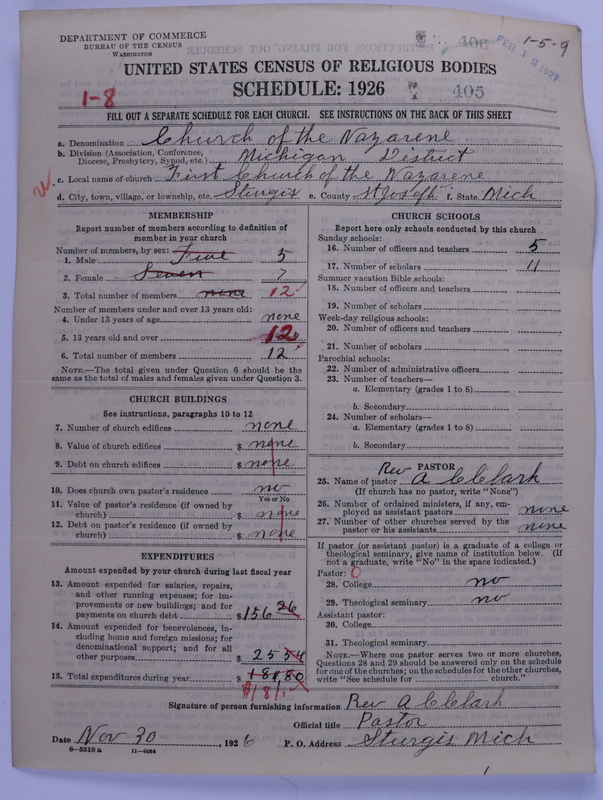 DEPARTMENT OF COMMERCE
BUREAU OF THE CENSUS
WASHINGTON
406
FEB 12 1927
1-5-9
UNITED STATES CENSUS OF RELIGIOUS BODIES
SCHEDULE: 1926
1-8
405
FILL OUT A SEPARATE SCHEDULE FOR EACH CHURCH. SEE INSTRUCTIONS ON THE BACK OF THIS SHEET
a. Denomination Church of the Nazarene
b. Division (Association, Conference, Diocese, Presbytery, Synod, etc.) Michigan District
c. Local name of church First Church of the Nazarene
d. City, town, village, or township, etc. Sturgis e. County St Joseph f. State Mich
MEMBERSHIP
Report number of members according to definition of
member in your church
Number of members, by sex:
1. Male Five 5
2. Female Seven 7
3. Total number of members none 12
Number of members under and over 13 years old:
4. Under 13 years of age none
5. 13 years old and over 12
6. Total number of members 12
NOTE.—The total given under Question 6 should be
same as the total of males and females given under Question 3.
CHURCH BUILDINGS
See instructions, paragraphs 10 to 12
7. Number of church edifices none
8. Value of church edifices $ none
9. Debt on church edifices $ none
10. Does church own pastor's residence no
Yes or No
11. Value of pastor's residence (if owned by
church) $ none
12. Debt on pastor's residence (if owned by
church) $ none
EXPENDITURES
Amount expended by your church during last fiscal year
13. Amount expended for salaries, repairs,
and other running expenses; for im-
provements or new buildings; and for
payments on church debt $156 26
14. Amount expended for benevolences, in-
cluding home and foreign missions; for
denominational support; and for all
other purposes $ 25 54
15. Total expenditures during year $ 181 80
$181
CHURCH SCHOOLS
Report here only schools conducted by this church
Sunday schools:
16. Number of officers and teachers 5
17. Number of scholars 11
Summer vacation Bible schools:
18. Number of officers and teachers
19. Number of scholars
Week-day religious schools:
20. Number of officers and teachers
21. Number of scholars
Parochial schools:
22. Number of administrative officers
23. Number of teachers—
a. Elementary (grades 1 to 8)
b. Secondary
24. Number of scholars—
a. Elementary (grades 1 to 8)
b. Secondary
PASTOR
25. Name of pastor Rev A C Clark
(If church has no pastor, write "None")
26. Number of ordained ministers, if any, em-
ployed as assistant pastors none
27. Number of other churches served by the
pastor or his assistants none
If pastor (or assistant pastor) is a graduate of a college or
theological seminary, give name of institution below. (If
not a graduate, write "No" in the space indicated.)
Pastor: 0
28. College no
29. Theological seminary no
Assistant pastor:
30. College
31. Theological seminary
NOTE.—Where one pastor serves two or more churches,
Questions 28 and 29 should be answered only on the schedule
for one of the churches; on the schedules for the other churches,
write "See schedule for church."
Signature of person furnishing information Rev A C Clark
Official title Pastor
Date Nov 30, 1926 P. O. Address Sturgis Mich
8—5518 a 11—9054